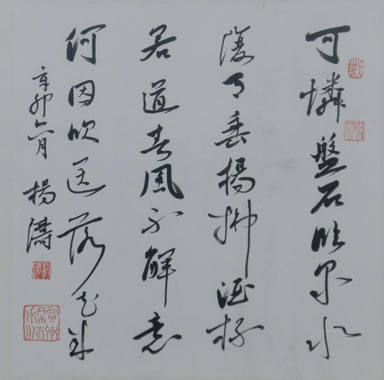 可憐盤石臨泉水
復有垂楊拂酒杯
若道春風不解意
何因吹送落花來
辛卯六月 楊濤